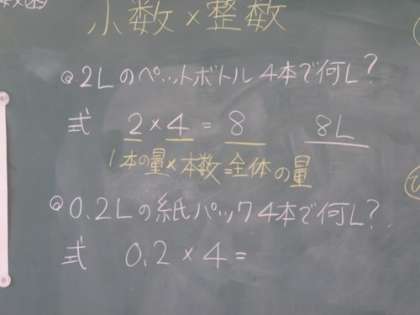 小数×整数
Q2Lのペットボトル4本で何L?
式 2×4=8 8L
1本の量×本数=全体の量
Q0.2Lの紙パック4本で何L?
式 0.2×4=